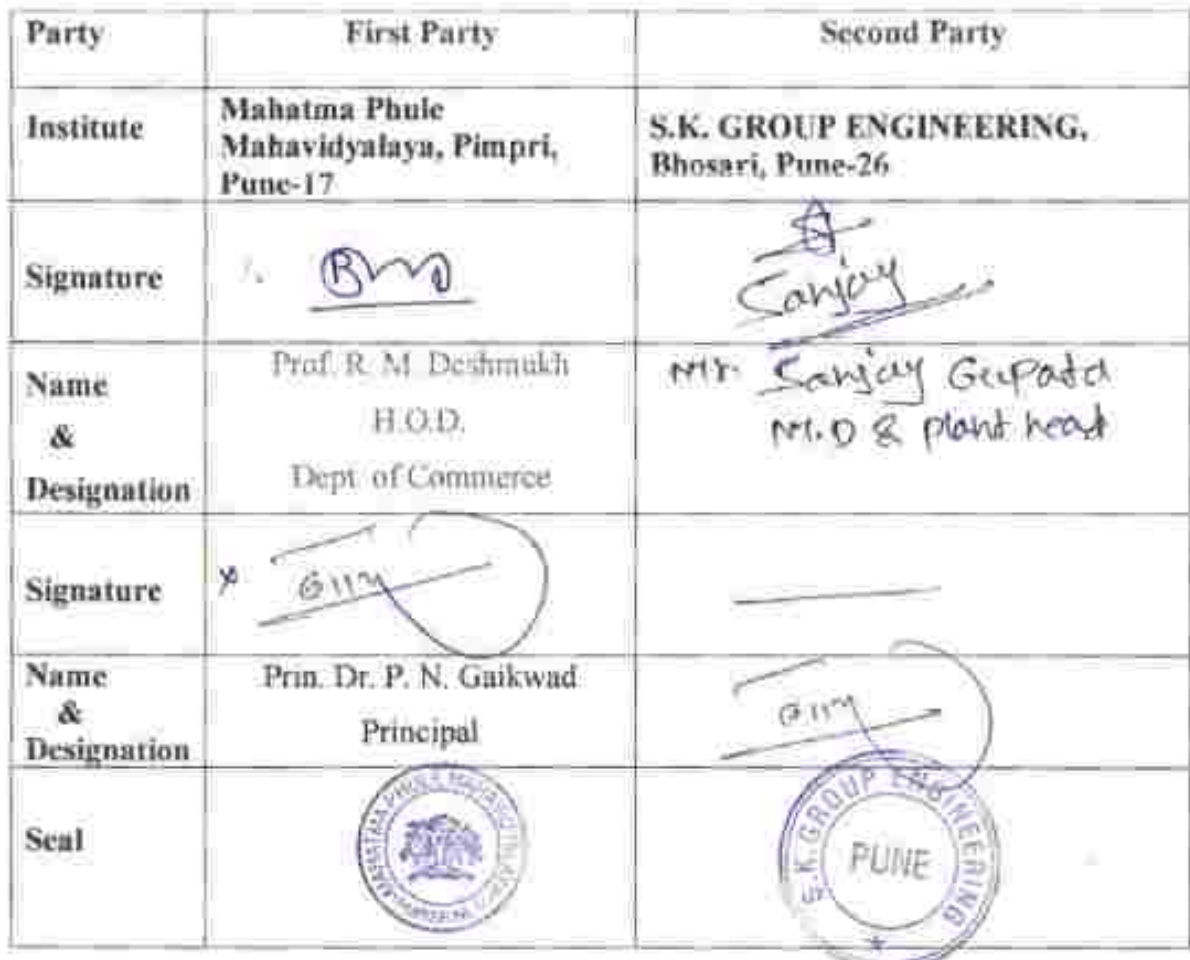 Party First Party Second Party
Institute
Mahatma Phule
Mahavidyalaya, Pimpri,
Pune-17
S.K. GROUP ENGINEERING,
Bhosari, Pune-26
Signature
Sanjay
Name
&
Designation
Prof. R. M. Deshmukh
H.O.D.
Dept. of Commerce
Mr. Sanjay Gupata
M.D & plant head
Signature
Name
&
Designation
Prin. Dr. P. N. Gaikwad
Principal
Seal
MAHATMA PHULE
S.K. GROUP ENGINEERING
PUNE